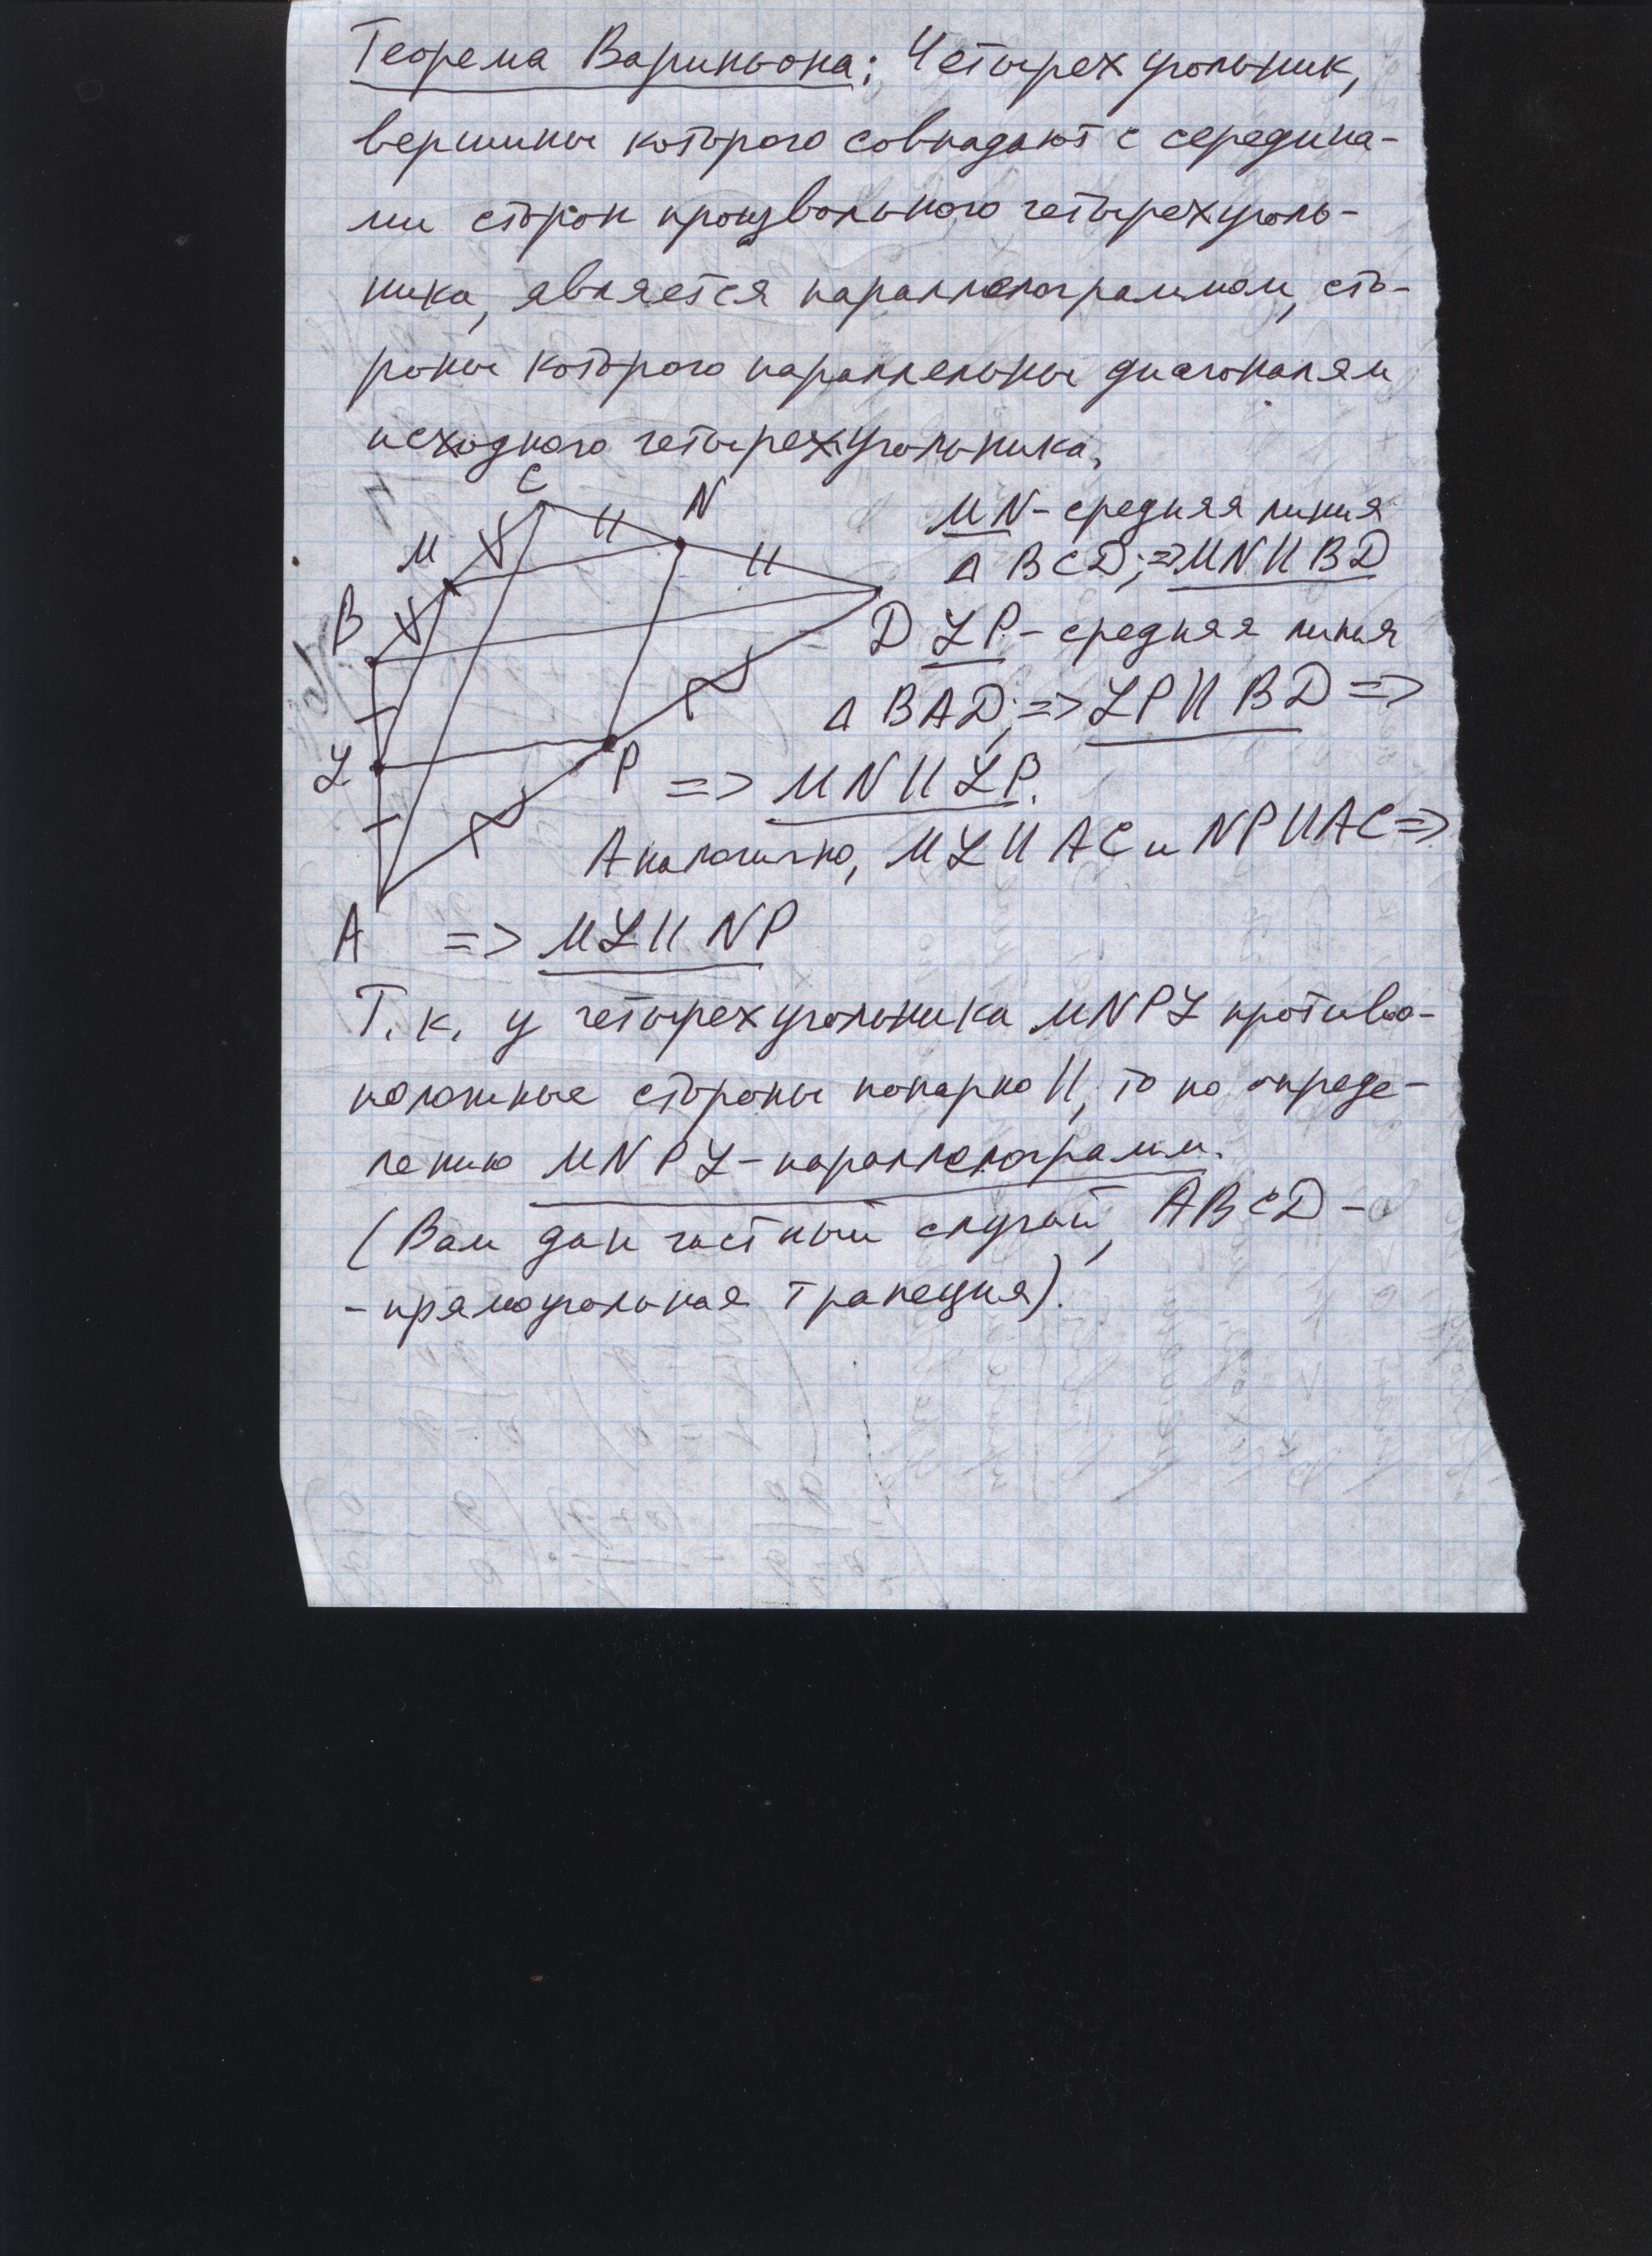 Теорема Вариньона: Четырехугольник,
вершины которого совпадают с середина-
ми сторон произвольного четырехуголь-
ника, является параллелограммом, сто-
роны которого параллельны диагоналям
исходного четырехугольника.
C
N
M
B
D
L
P
A
MN - средняя линия
△ BCD; => MN || BD
LP - средняя линия
△ BAD; => LP || BD =>
=> MN || LP.
Аналогично, ML || AC и NP || AC =>
=> ML || NP
Т. к. у четырехугольника MNPL противо-
положные стороны попарно ||, то по опреде-
лению MNPL - параллелограмм.
(Вам дан частный случай, ABCD -
- прямоугольная трапеция).